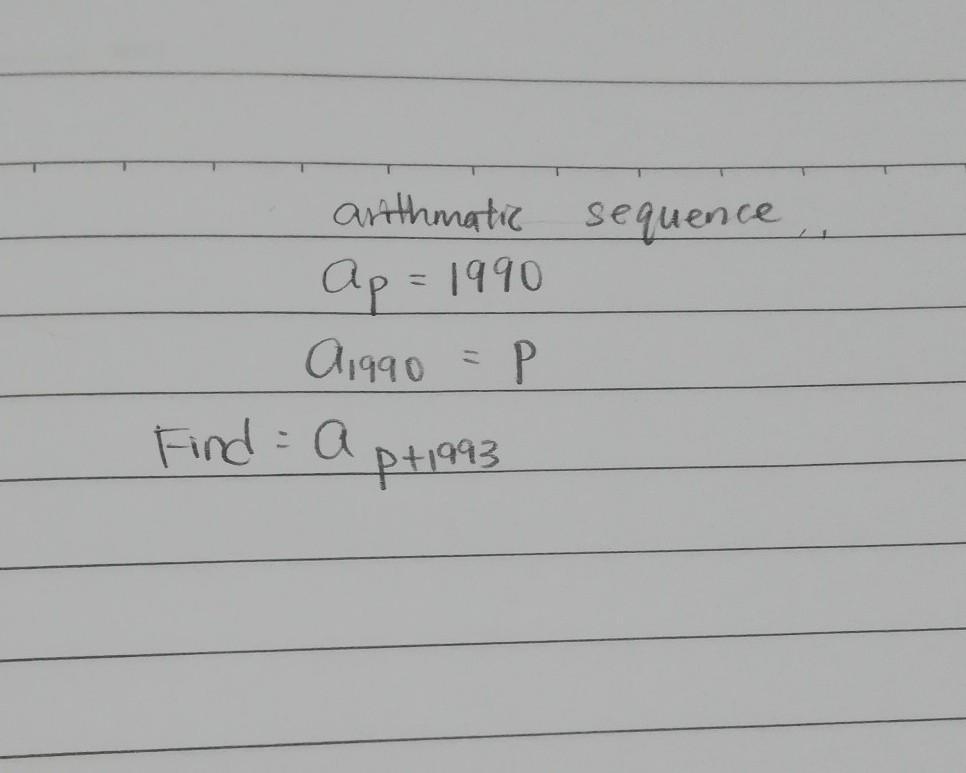 arithmatic sequence,,
ap = 1990
a1990 = p
Find = a p+1993